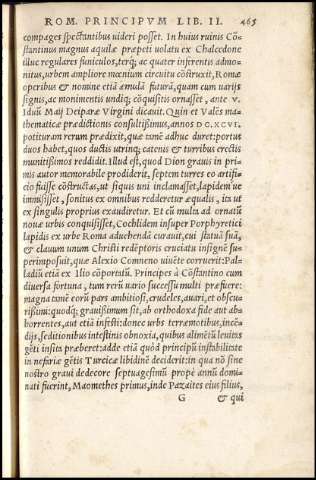 ROM. PRINCIPVM LIB. II. 465
compages spectantibus uideri posset. In huius ruinis Cõ=
stantinus magnus aquilæ præpeti uolatu ex Chalcedone
illuc regulares funiculos, terq; ac quater inferentis admo=
nitus, urbem ampliore mœnium circuitu cõstruxit, Romæ
operibus & nomine etiã æmulã futurã, quam cum uarijs
signis, ac monimentis undiq; cõquisitis ornasset, ante v.
Iduũ Maij Deiparæ Virgini dicauit. Quin et Valẽs ma=
thematicæ prædictionis consultißimus, annos D C. XCVI.
potituram rerum prædixit, quæ tamẽ adhuc duret: portus
duos habet, quos ductis utrinq; catenis & turribus erectis
munitißimos reddidit. Illud est, quod Dion grauis in pri=
mis autor memorabile prodiderit, septem turres eo artifi=
cio fuisse cõstructas, ut siquis uni inclamasset, lapidem ue
immisisset, sonitus ex omnibus redderetur æqualis, ita ut
ex singulis proprius exaudiretur. Et cũ multa ad ornatũ
nouæ urbis conquisisset, Cochlidem insuper Porphyretici
lapidis ex urbe Roma aduehendã curauit, cui statuã suã,
& clauum unum Christi redẽptoris cruciatu insignẽ su=
perimposuit, quæ Alexio Comneno uiuẽte corruerit: Pal=
ladiũ etiã ex Ilio cõportatũ. Principes à Cõstantino cum
diuersa fortuna, tum rerũ uario successu multi præfuere:
magna tamẽ eorũ pars ambitiosi, crudeles, auari, et obscu=
rißimi: quodq; grauißimum sit, ab orthodoxa fide aut ab=
horrentes, aut etiã infesti: donec urbs terræmotibus, incẽ=
dijs, seditionibus intestinis obnoxia, quibus alimẽtũ leuitas
gẽti insita præberet: adde etiã quòd principũ instabilitate
in nefariæ gẽtis Turcicæ libidinẽ deciderit: in qua nõ sine
nostro graui dedecore septuagesimũ propè annũ domi=
nati fuerint, Maomethes primus, inde Pazaites eius filius,
G & qui